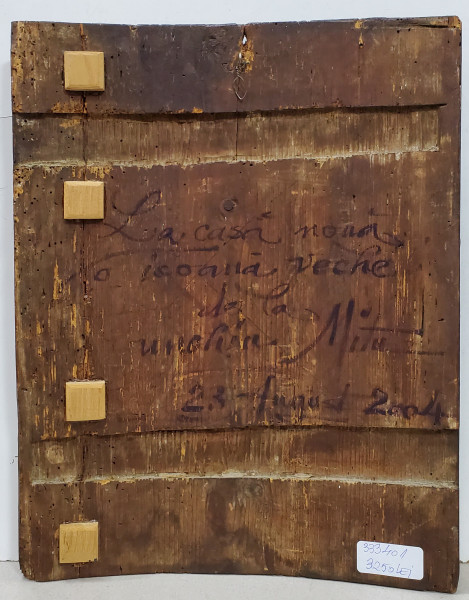 La casă nouă,
o icoană veche
de la
unchiu Mitu
23 August 2004
333401
3250 Lei